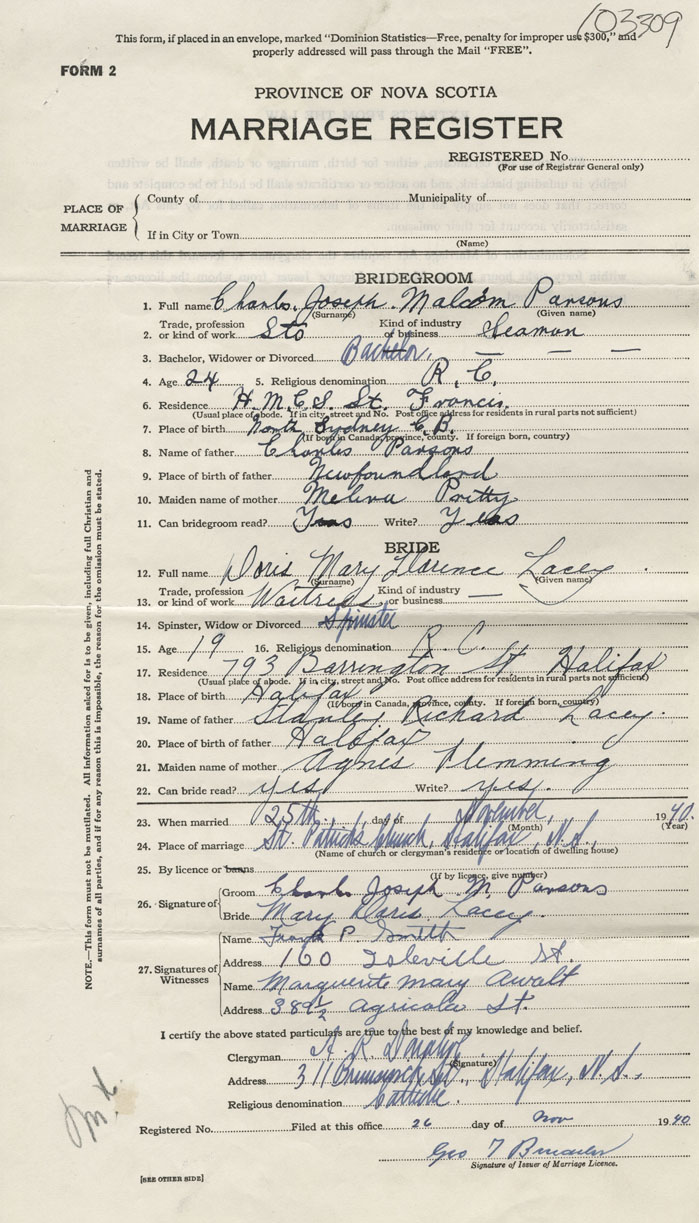 103309
This form, if placed in an envelope, marked "Dominion Statistics—Free, penalty for improper use $300," and
properly addressed will pass through the Mail "FREE".
FORM 2
PROVINCE OF NOVA SCOTIA
MARRIAGE REGISTER
REGISTERED No.
(For use of Registrar General only)
PLACE OF MARRIAGE
County of Municipality of
If in City or Town
(Name)
BRIDEGROOM
1. Full name Charles Joseph Malcom Parsons
(Surname) (Given name)
2. Trade, profession or kind of work Sto Kind of industry or business Seaman
3. Bachelor, Widower or Divorced Bachelor, — — —
4. Age 24 5. Religious denomination R. C.
6. Residence H. M. C. S. St. Francis.
(Usual place of abode. If in city, street and No. Post office address for residents in rural parts not sufficient)
7. Place of birth North Sydney C. B.
(If born in Canada, province, county. If foreign born, country)
8. Name of father Charles Parsons
9. Place of birth of father Newfoundland
10. Maiden name of mother Melina Pretty
11. Can bridegroom read? Yes Write? Yes
BRIDE
12. Full name Doris Mary Florence Lacey
(Surname) (Given name)
13. Trade, profession or kind of work Waitress Kind of industry or business —
14. Spinster, Widow or Divorced Spinster
15. Age 19 16. Religious denomination R. C.
17. Residence 793 Barrington St Halifax
(Usual place of abode. If in city, street and No. Post office address for residents in rural parts not sufficient)
18. Place of birth Halifax
(If born in Canada, province, county. If foreign born, country)
19. Name of father Stanley Richard Lacey.
20. Place of birth of father Halifax
21. Maiden name of mother Agnes Flemming
22. Can bride read? yes Write? yes.
23. When married 25th. day of November, 1940.
(Month) (Year)
24. Place of marriage St. Patrick's Church, Halifax, N.S.,
(Name of church or clergyman's residence or location of dwelling house)
25. By licence or banns
(If by licence, give number)
26. Signature of
Groom Charles Joseph M. Parsons
Bride Mary Doris Lacey.
27. Signatures of Witnesses
Name Frank P. Smith
Address 160 Isleville St.
Name Marguerite mary Awalt
Address 389½ Agricola St.
I certify the above stated particulars are true to the best of my knowledge and belief.
Clergyman A. R. Donahoe
(Signature)
Address 311 Brunswick St., Halifax, N.S.,
Religious denomination Catholic.
Registered No. Filed at this office 26 day of Nov 1940
Geo T
Signature of Issuer of Marriage Licence.
[SEE OTHER SIDE]
NOTE.—This form must not be mutilated. All information asked for is to be given, including full Christian and
surnames of all parties, and if for any reason this is impossible, the reason for the omission must be stated.